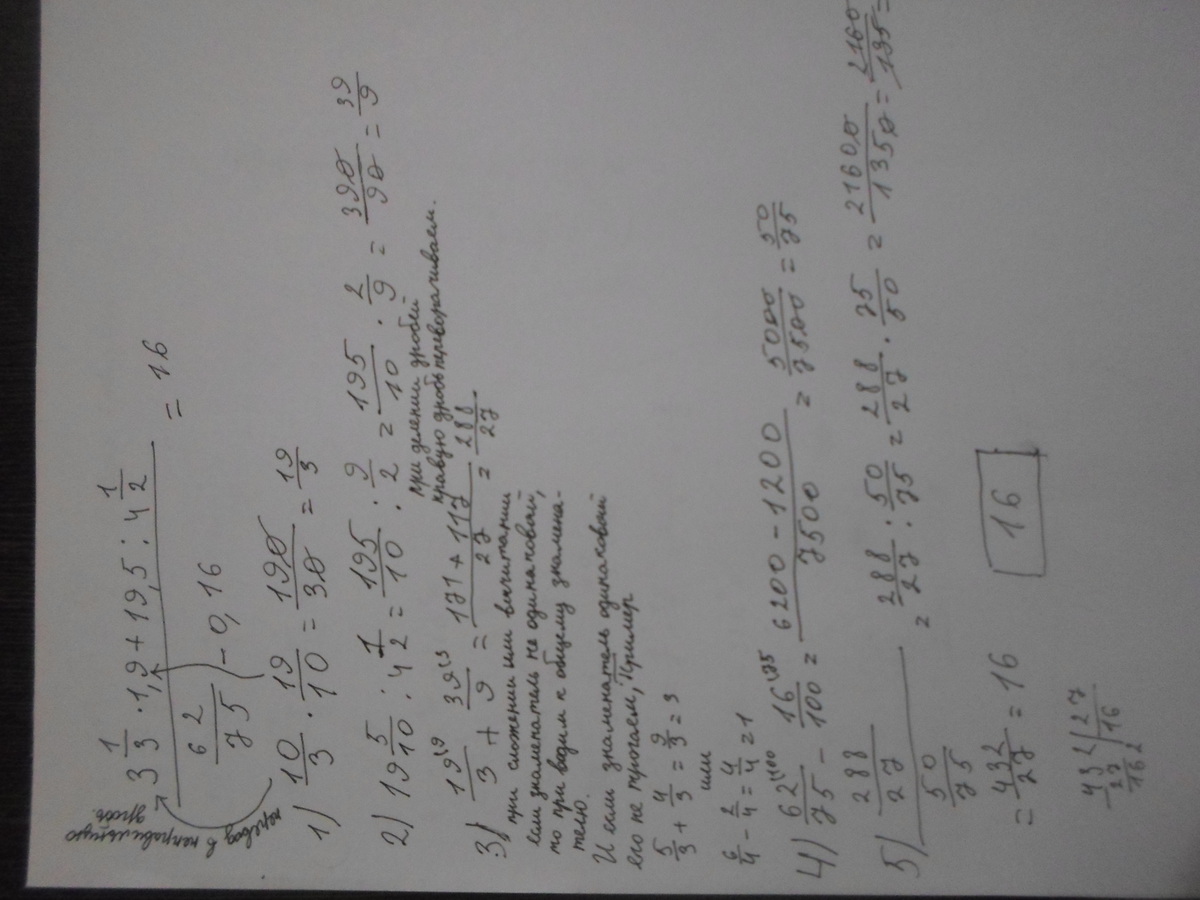 3 1/3 · 1,9 + 19,5 : 4 1/2
6 2/75 - 0,16
= 16
перевод в неправильную дробь.
1) 10/3 · 19/10 = 190/30 = 19/3
2) 19 5/10 : 4 1/2 = 195/10 · 9/2 = 195/10 · 2/9 = 390/90 = 39/9
при делении дробей
правую дробь переворачиваем.
3) 19/3 + 39/9 = 171 + 117/27 = 288/27
при сложении или вычитании
если знаменатель не одинаковый,
то при водим к общему знамена-
телю.
И если знаменатель одинаковый
его не трогаем, Пример
5/3 + 4/3 = 9/3 = 3
или
6/4 - 2/4 = 4/4 = 1
4) 62/75 - 16/100 = 6200 - 1200/7500 = 5000/7500 = 50/75
5) 288/27 / 50/75 = 288/27 : 50/75 = 288/27 · 75/50 = 21600/1350 = 2160/135 =
= 432/27 = 16
16
432 27
27 16
162